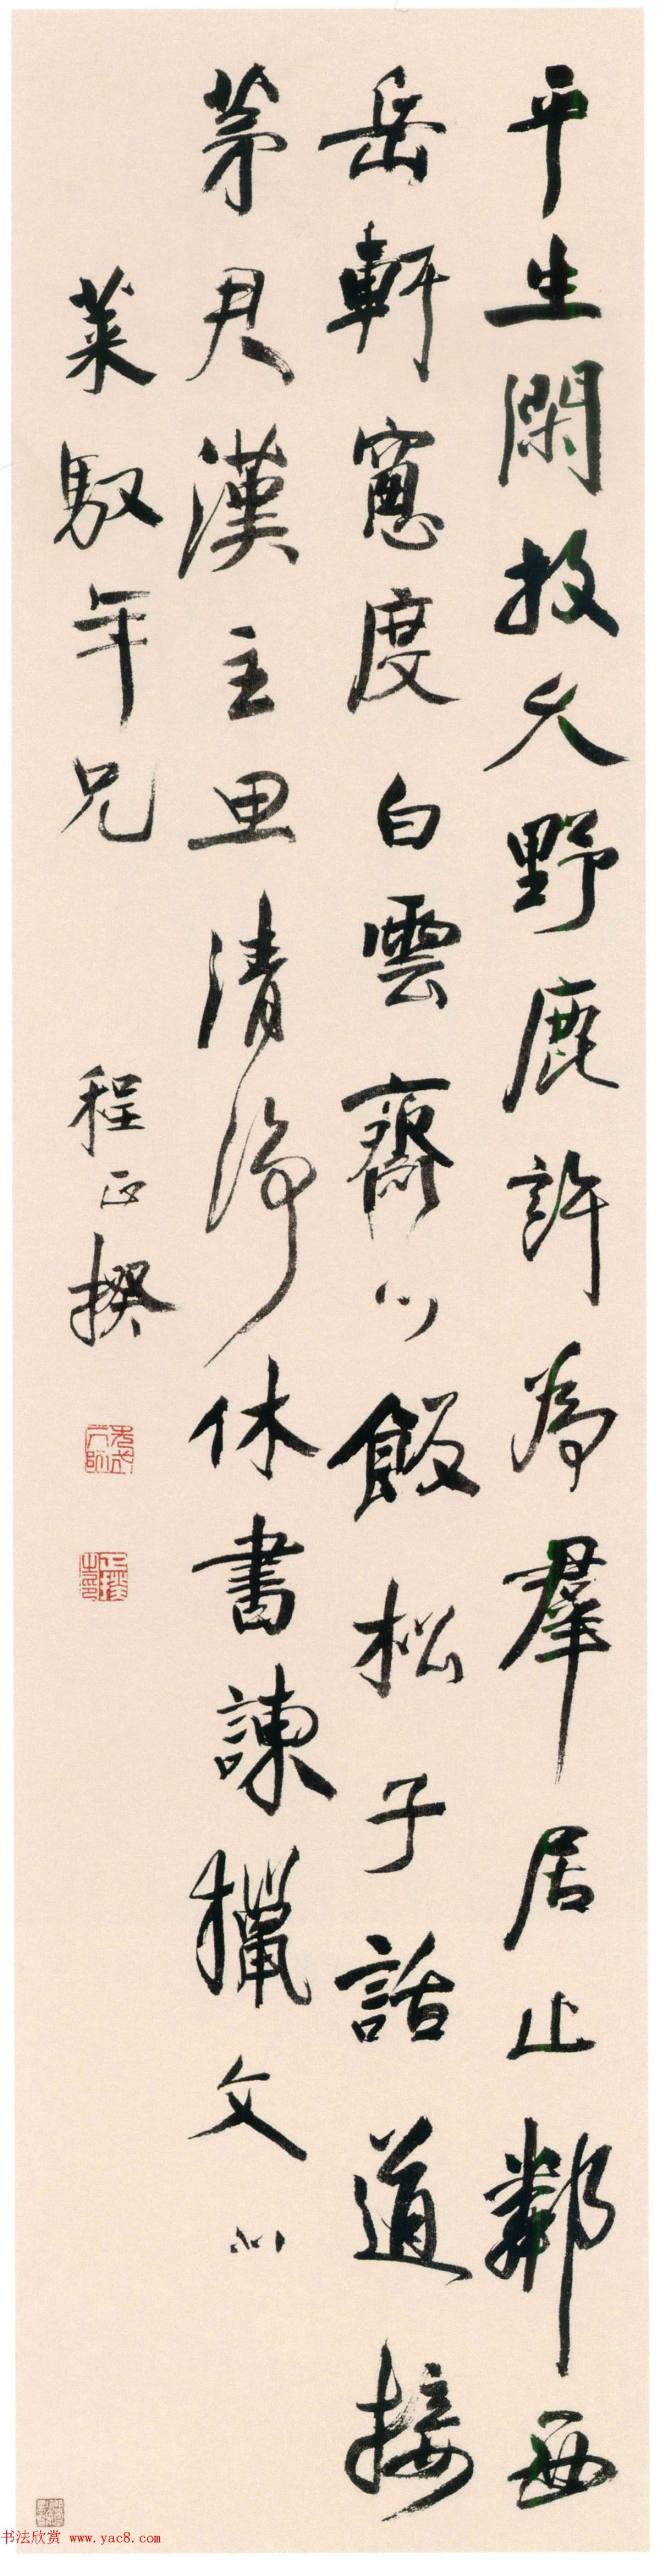 平生閑放久野鹿許為羣居止鄰西
岳軒窻度白雲齋心飯松子話道接
茅君漢主思清淨休書諫獵文
萊馭年兄 程正揆
书法欣赏 www.yac8.com